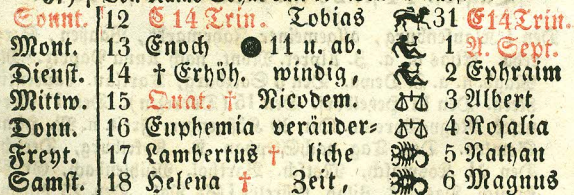 Sonnt. 12 E 14 Trin. Tobias 31 E 14 Trin.
Mont. 13 Enoch ● 11 u. ab. 1 A. Sept.
Dienst. 14 † Erhöh. windig, 2 Ephraim
Mittw. 15 Quat. † Nicodem. 3 Albert
Donn. 16 Euphemia veränder= 4 Rosalia
Freyt. 17 Lambertus † liche 5 Nathan
Samst. 18 Helena † Zeit, 6 Magnus